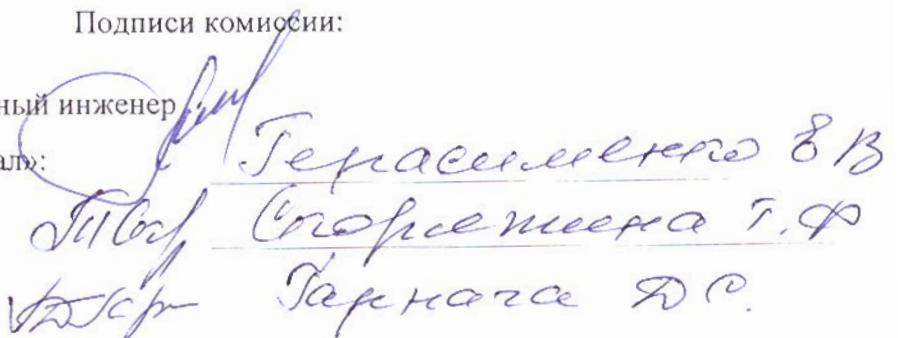 Подписи комиссии:
ный инженер
ал»: Герасименко Е В
Т.Ф
Гарнага Д С.